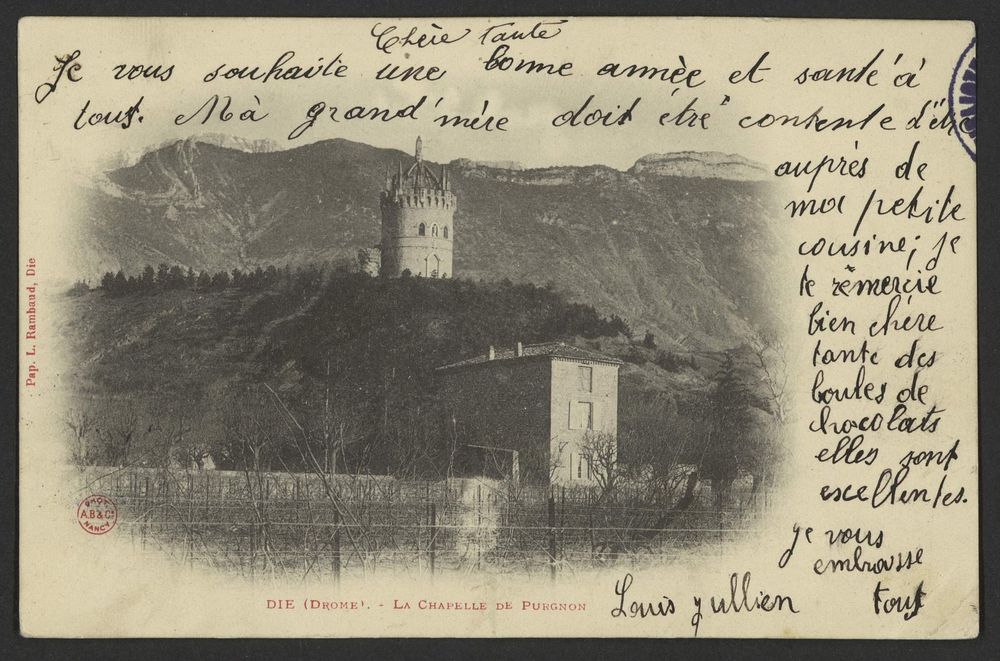 Chère tante
Je vous souhaite une bonne année et santé à
tous. Mà grand'mère doit être contente d'êt
auprès de
ma petite
cousine; je
te rêmercie
bien chère
tante des
boules de
chocolats
elles sont
excellentes.
je vous
embrasse
tous
Louis jullien
Pap. L. Rambaud, Die
PHOT
A.B & Cie
NANCY
DIE (DROME). - LA CHAPELLE DE PURGNON